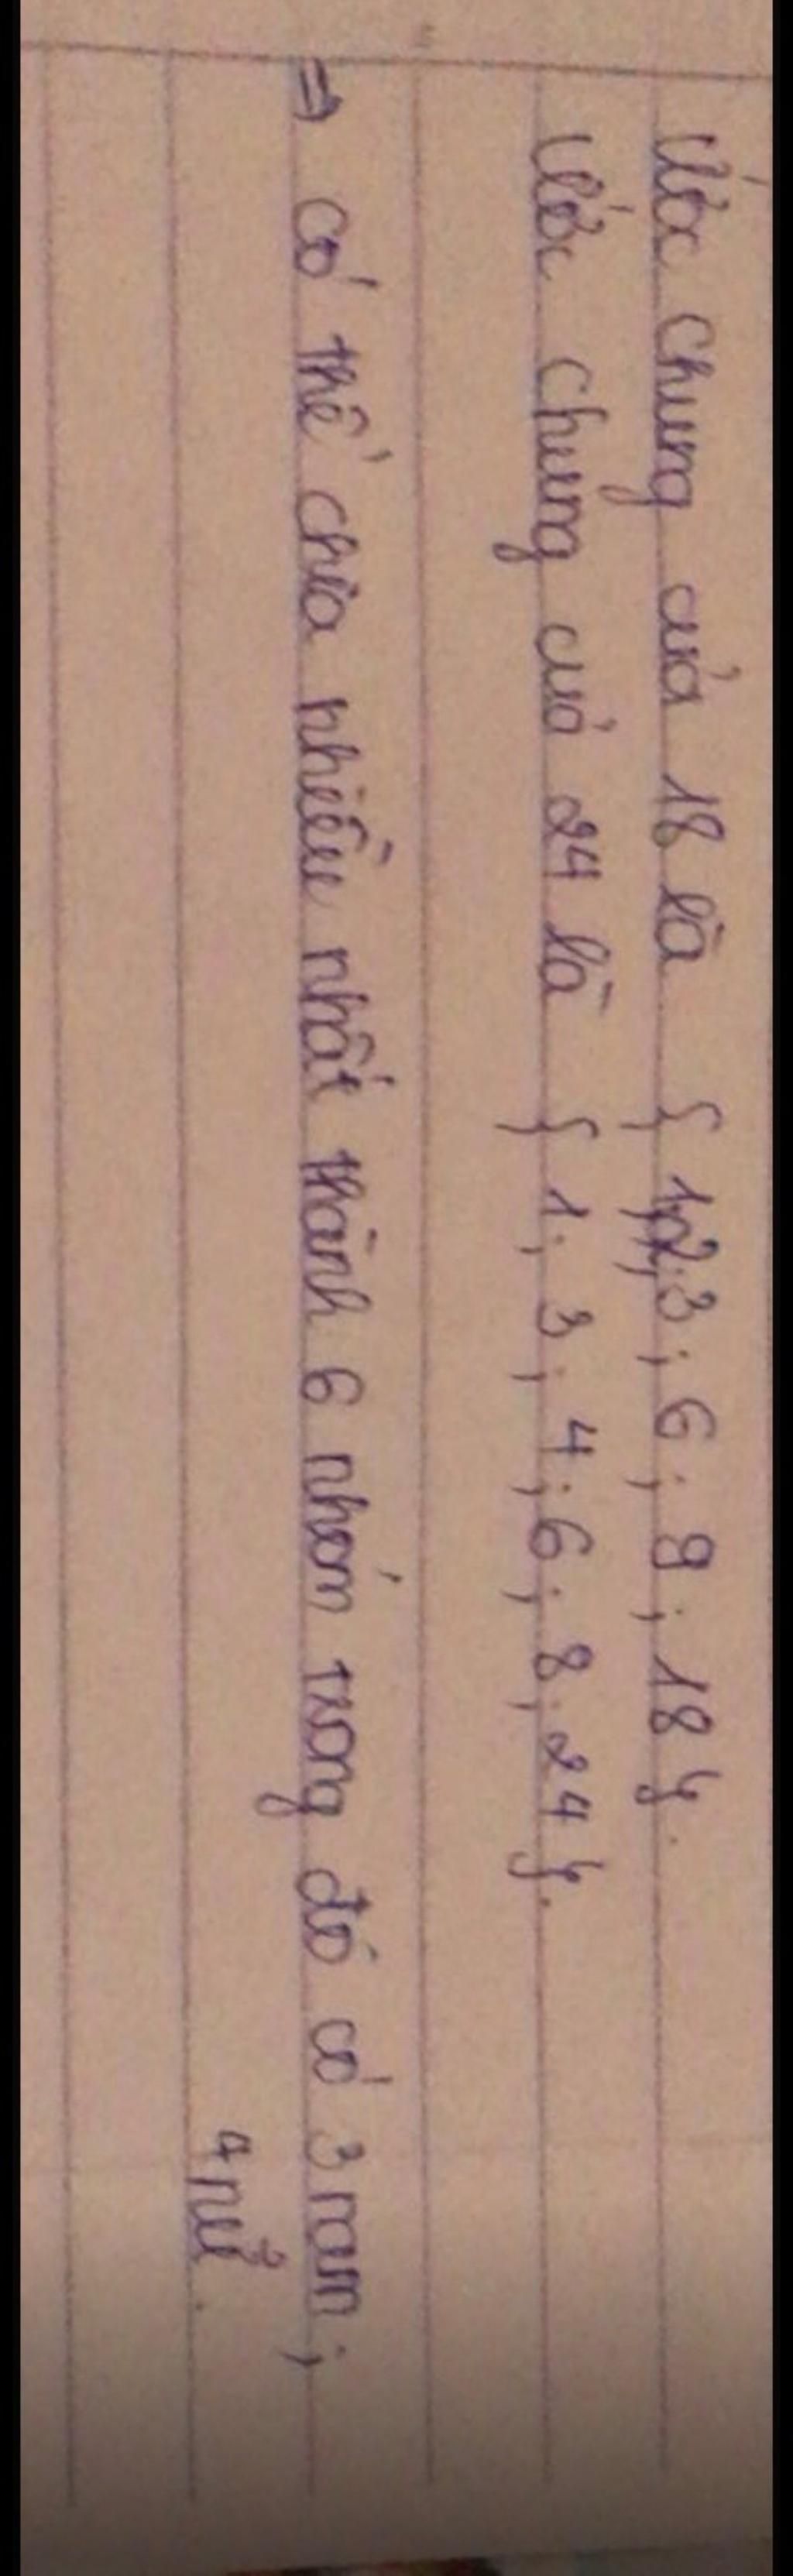 Ước chung của 18 là { 1;2;3; 6; 9; 18 }.
Ước chung của 24 là { 1; 3; 4; 6; 8; 24 }.
⇒ có thể chia nhiều nhất thành 6 nhóm trong đó có 3 nam;
4 nữ.